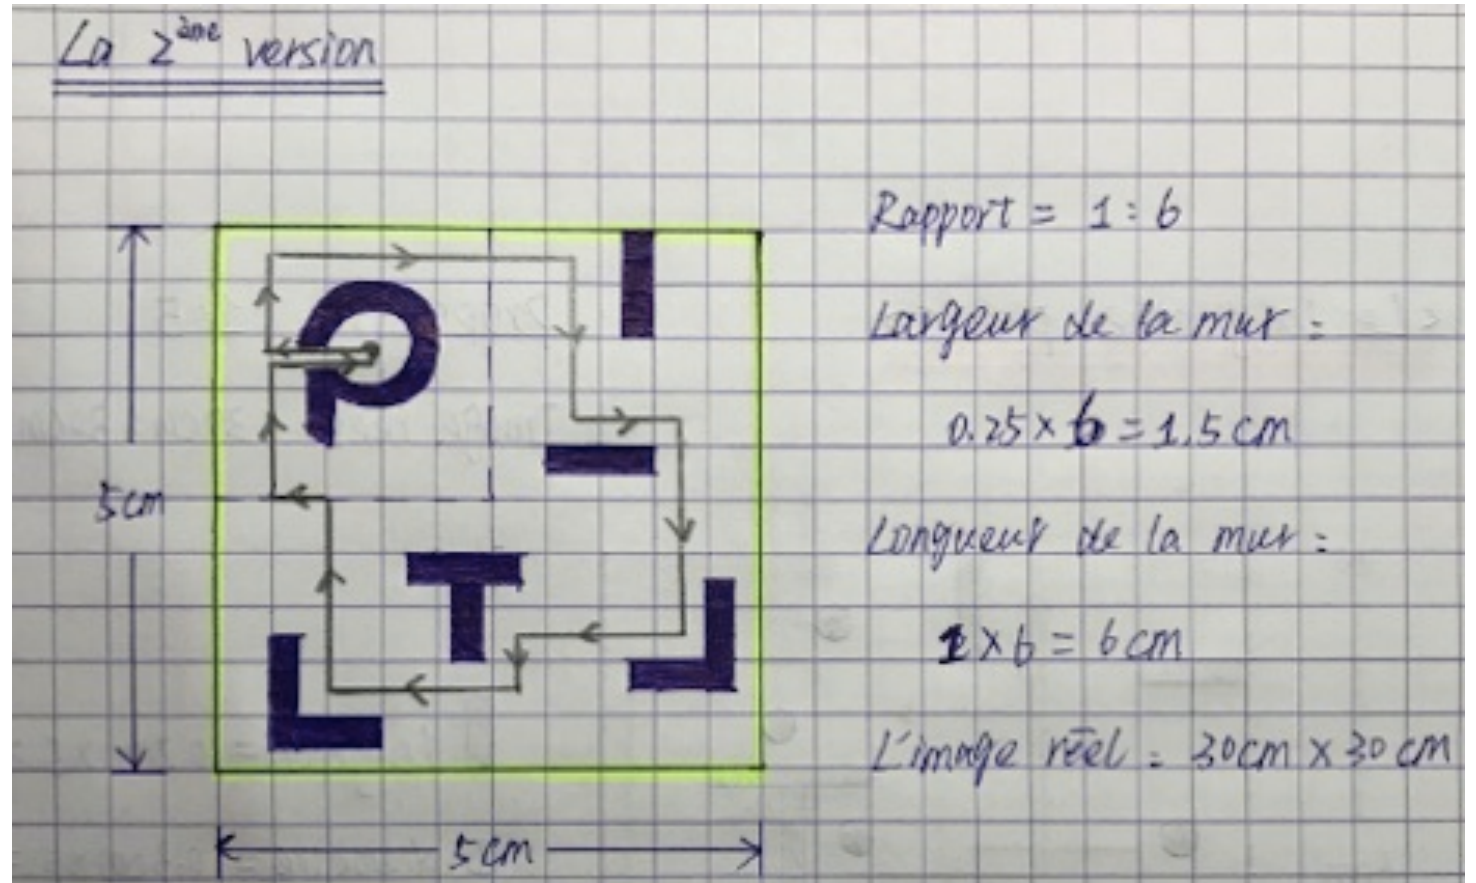 La 2ème version
Rapport = 1 : 6
Largeur de la mur :
0.25 × 6 = 1.5 cm
5cm
Longueur de la mur :
1 × 6 = 6 cm
L'image réel : 30cm × 30 cm
5 cm